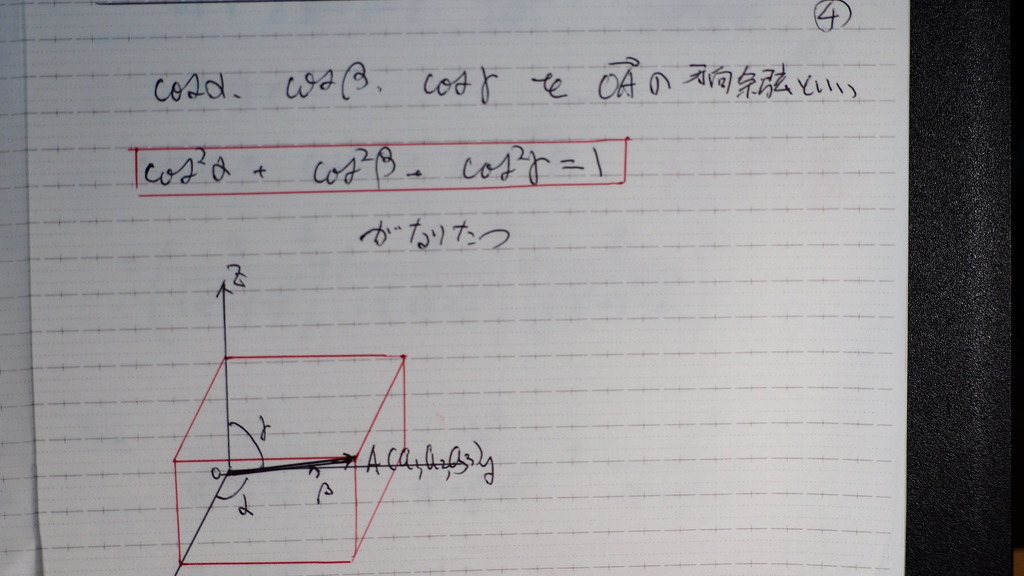 ④
cosα. cosβ. cosγ を OAの方向余弦といい、
cos²α + cos²β + cos²γ = 1
がなりたつ
z
γ
O A(a₁,a₂,a₃) y
β
α